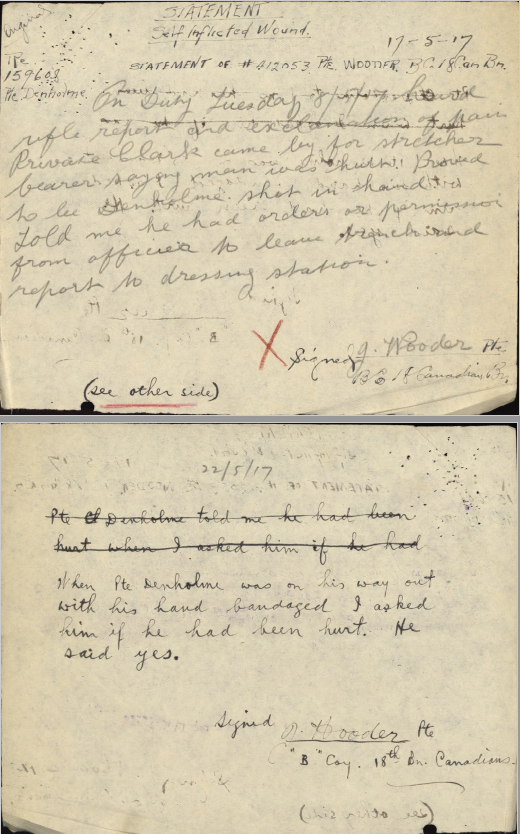 Original
STATEMENT
Self Inflicted Wound.
17-5-17
Re
159608
Pte Denholme
STATEMENT OF # 412053 Pte. WOODER. B C. 18 Can Bn.
On Duty Tuesday 8/5/17 heard
rifle report and exclamation of pain
Private Clark came by for stretcher
bearer saying man was hurt. Proved
to be Denholme shot in hand
Told me he had orders or permission
from officer to leave trench and
report to dressing station.
Signed J. Wooder Pte
B.C. 18 Canadian Bn.
(see other side)
22/5/17
Pte Denholme told me he had been
hurt when I asked him if he had
When Pte Denholme was on his way out
with his hand bandaged I asked
him if he had been hurt. He
said yes.
Signed J. Wooder Pte
"B" Coy. 18th Bn. Canadians.